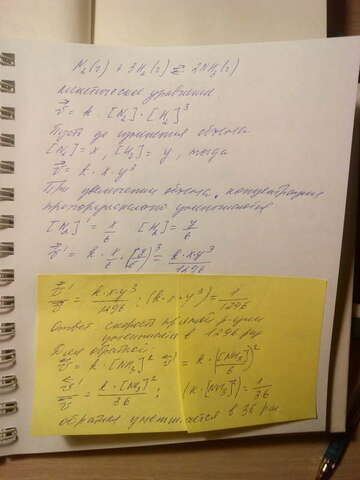 N₂(г) + 3H₂(г) ⇄ 2NH₃(г)
кинетическое уравнение
v⃗ = k · [N₂] · [H₂]³
Пусть до изменения объема
[N₂] = x , [H₂] = y , тогда
v⃗ = k · x · y³
При увеличении объема, концентрация
пропорционально уменьшается
[N₂]' = x/6 [H₂] = y/6
v⃗' = k · x/6 · (y/6)³ = k · x · y³/1296
v⃗'/v⃗ = k · x · y³/1296 : (k · x · y³) = 1/1296
Ответ скорость прямой р-ции
уменьшится в 1296 раз
Для обратной:
v⃖ = k · [NH₃]² v⃖' = k · ([NH₃]/6)²
v⃖'/v⃖ = k · [NH₃]²/36 : (k · [NH₃]²) = 1/36
обратная уменьшается в 36 раз